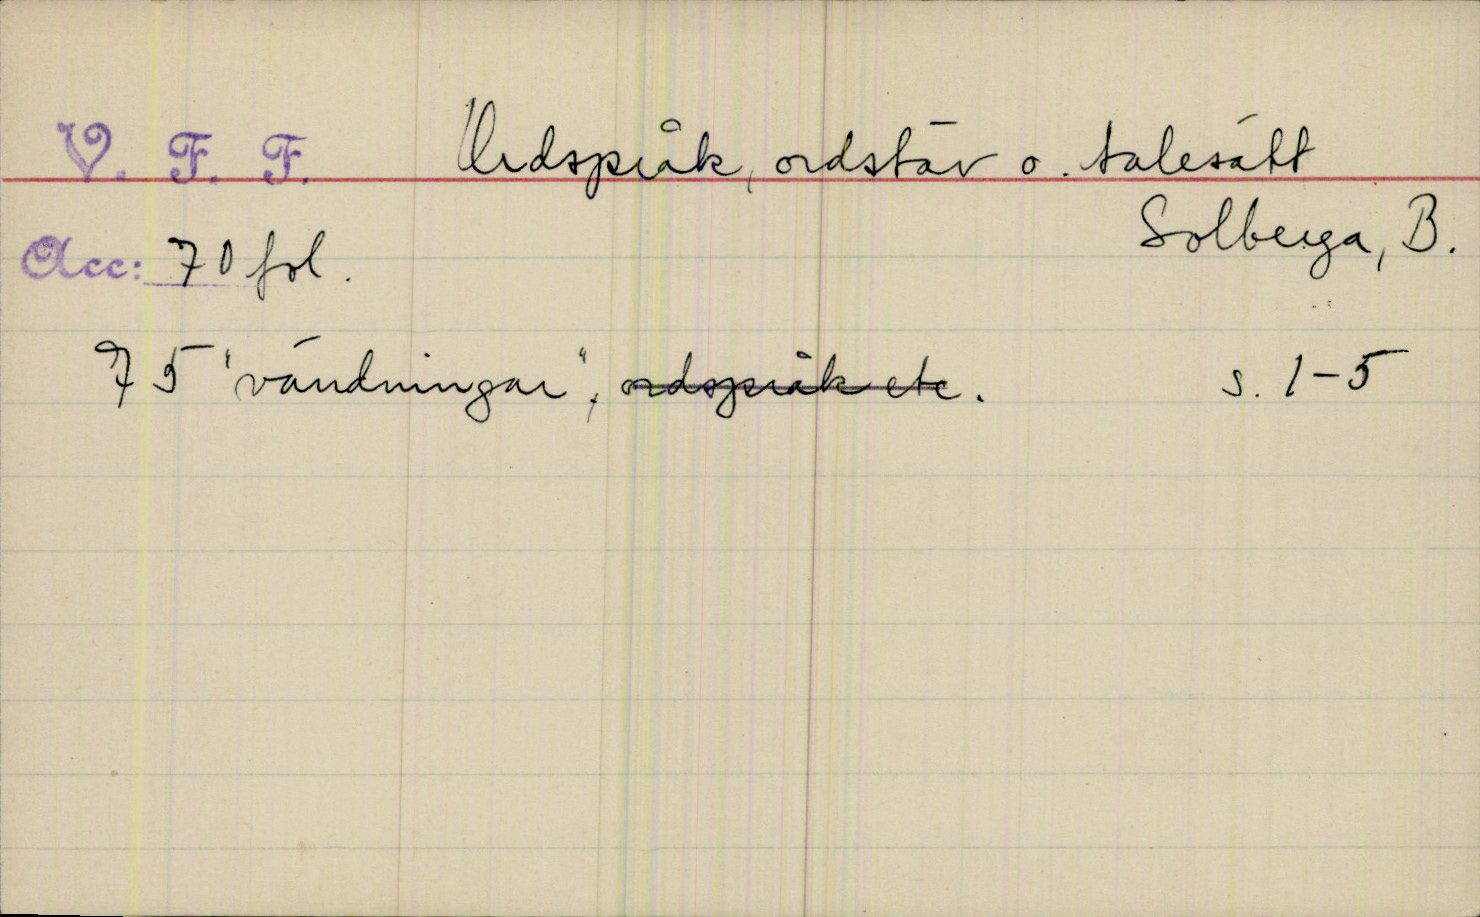 V. F. F. Ordspråk, ordstäv o. talesätt
Solberga, B.
Acc: 70 fol.
75 "vändningar", ordspråk etc. s. 1-5